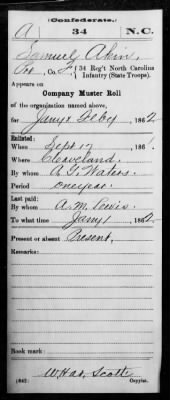 (Confederate.)
A 34 N.C.
Samuel Akin,
Pvt, Co. F, 34 Reg't North Carolina
Infantry (State Troops).
Appears on
Company Muster Roll
of the organization named above,
for Jany & Feby, 1862
Enlisted:
When Sept 17, 1861.
Where Cleveland.
By whom A. G. Waters.
Period one year.
Last paid:
By whom A. M. Lewis.
To what time Jany 1, 1862.
Present or absent Present.
Remarks:
Book mark:
Scott
(642) Copyist.